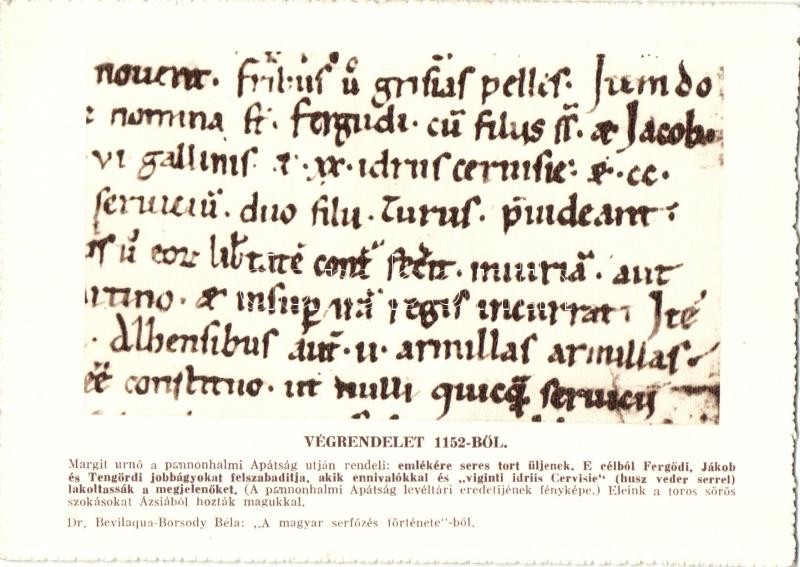 novent. fr̄ibus ů grisias pellis. Jum do
nomina st̄. fergudi. cū filiis ss̄. & Jacob
vi gallinis & .xx. idriis ceruisie. & .cc.
seruiciū. duo filii. Turus. puideant.
ů eoꝝ lib̄tatē iniuriā. aut
& insup irā regis incurrat. Itē
Albensibus aut̄. ii. armillas armillas.
constituo. ut nulli quicq̄ seruicii
VÉGRENDELET 1152-BŐL.
Margit urnő a pannonhalmi Apátság utján rendeli: emlékére seres tort üljenek. E célból Fergődi, Jákob
és Tengördi jobbágyokat felszabaditja, akik ennivalókkal és „viginti idriis Cervisie“ (husz veder serrel)
lakoltassák a megjelenőket. (A pannonhalmi Apátság levéltári eredetijének fényképe.) Eleink a toros sörös
szokásokat Ázsiából hozták magukkal.
Dr. Bevilaqua-Borsody Béla: „A magyar serfőzés története“-ből.